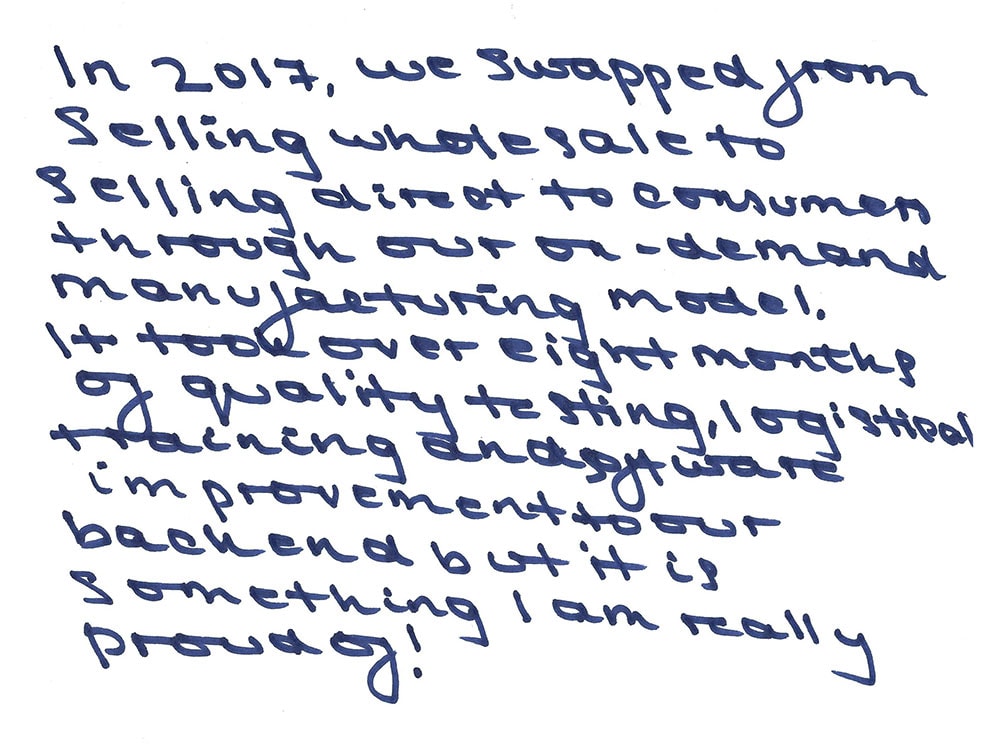 In 2017, we swapped from
Selling wholesale to
Selling direct to consumers
through our on-demand
manufacturing model.
It took over eight months
of quality testing, logistical
training and software
improvement to our
backend but it is
something I am really
proud of!